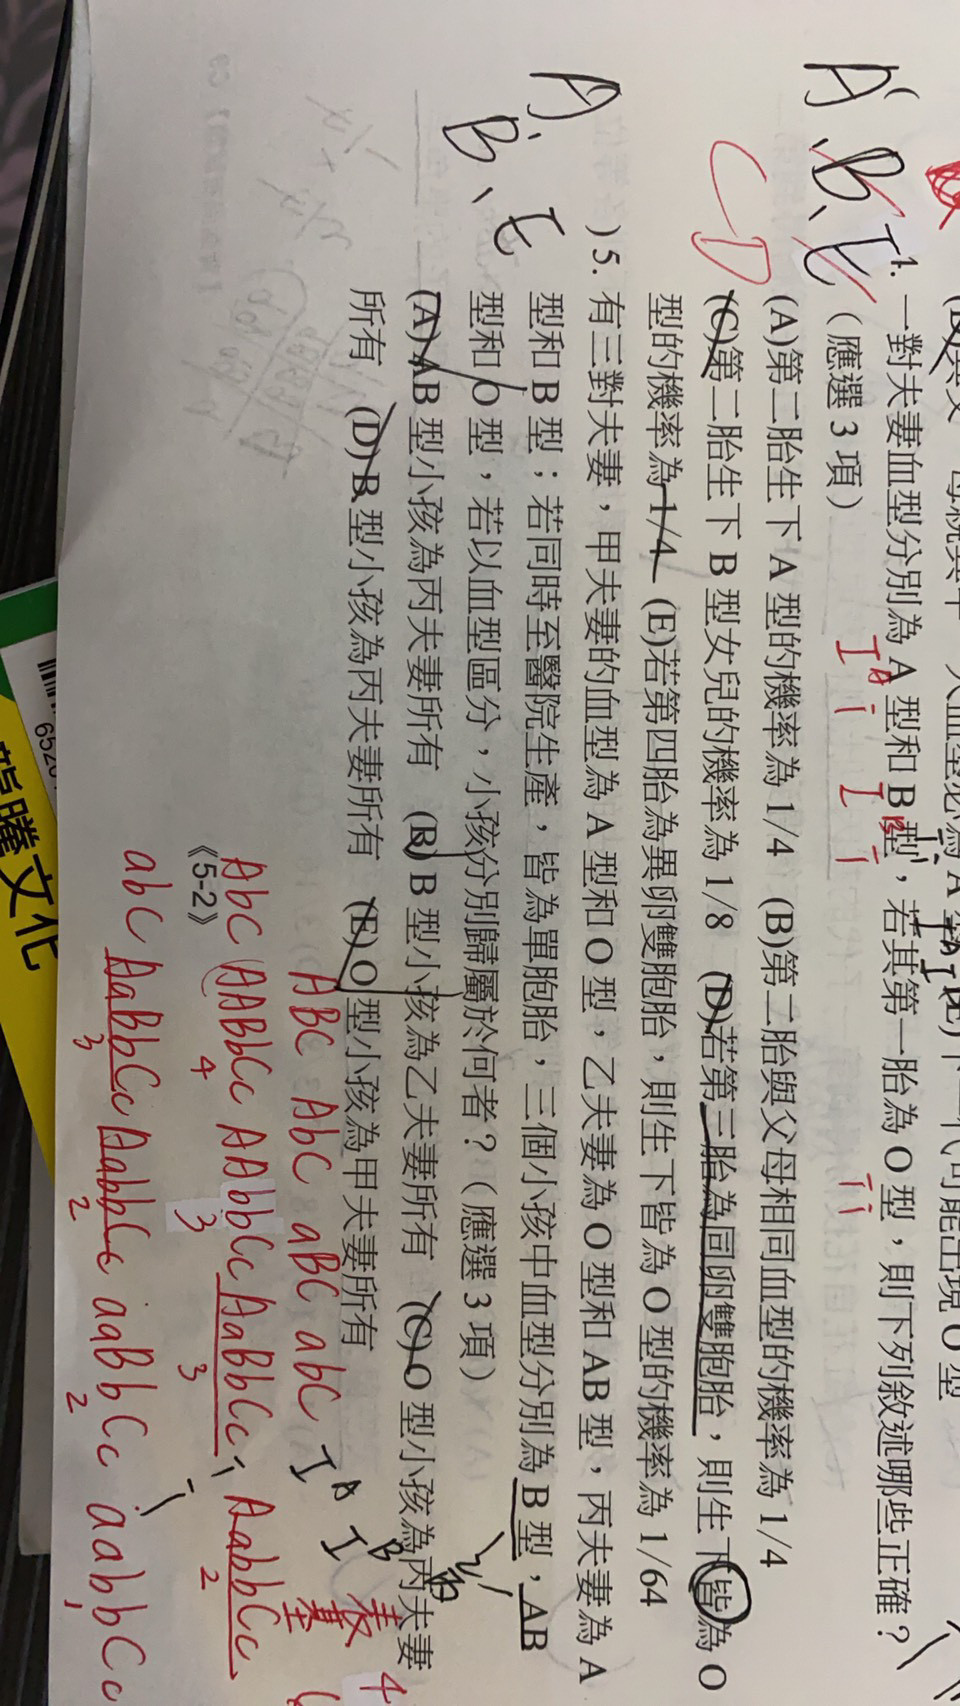 一對夫妻血型分別為 A 型和 B 型，若其第一胎為 O 型，則下列敘述哪些正確？
（應選 3 項）
(A)第二胎生下 A 型的機率為 1/4 (B)第二胎與父母相同血型的機率為 1/4
(C)第二胎生下 B 型女兒的機率為 1/8 (D)若第三胎為同卵雙胞胎，則生下皆為 O
型的機率為 1/4 (E)若第四胎為異卵雙胞胎，則生下皆為 O 型的機率為 1/64
A、B、E
CD
I^A i I^B i
i i
) 5. 有三對夫妻，甲夫妻的血型為 A 型和 O 型，乙夫妻為 O 型和 AB 型，丙夫妻為 A
型和 B 型；若同時至醫院生產，皆為單胞胎，三個小孩中血型分別為 B 型，AB
型和 O 型，若以血型區分，小孩分別歸屬於何者？（應選 3 項）
(A)AB 型小孩為丙夫妻所有 (B)B 型小孩為乙夫妻所有 (C)O 型小孩為丙夫妻
所有 (D)B 型小孩為丙夫妻所有 (E)O 型小孩為甲夫妻所有
A、B、E
ABC AbC aBC abC
I^A I^B
AbC AABbCc AAbbCc AaBbCc AabbCc
4 3 3 2
《5-2》
abC AaBbCc AabbCc aaBbCc aabbCc
3 2 2 1
龍騰文化